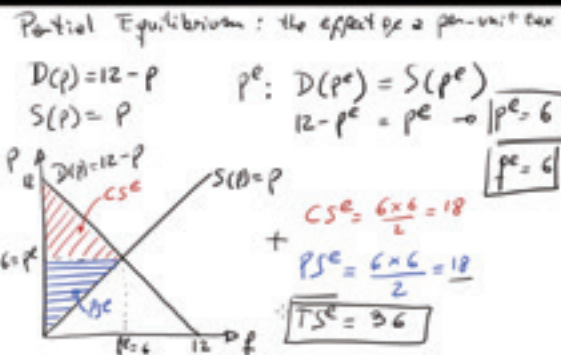 Partial Equilibrium : the effect of a per-unit tax
D(p) = 12 - p
S(p) = p
p^e : D(p^e) = S(p^e)
12 - p^e = p^e → p^e = 6
f^e = 6
P
12
D(p) = 12 - p
CS^e
S(p) = p
6 = p^e
PS^e
f^e = 6
12
f
CS^e = 6 × 6 / 2 = 18
+
PS^e = 6 × 6 / 2 = 18
TS^e = 36